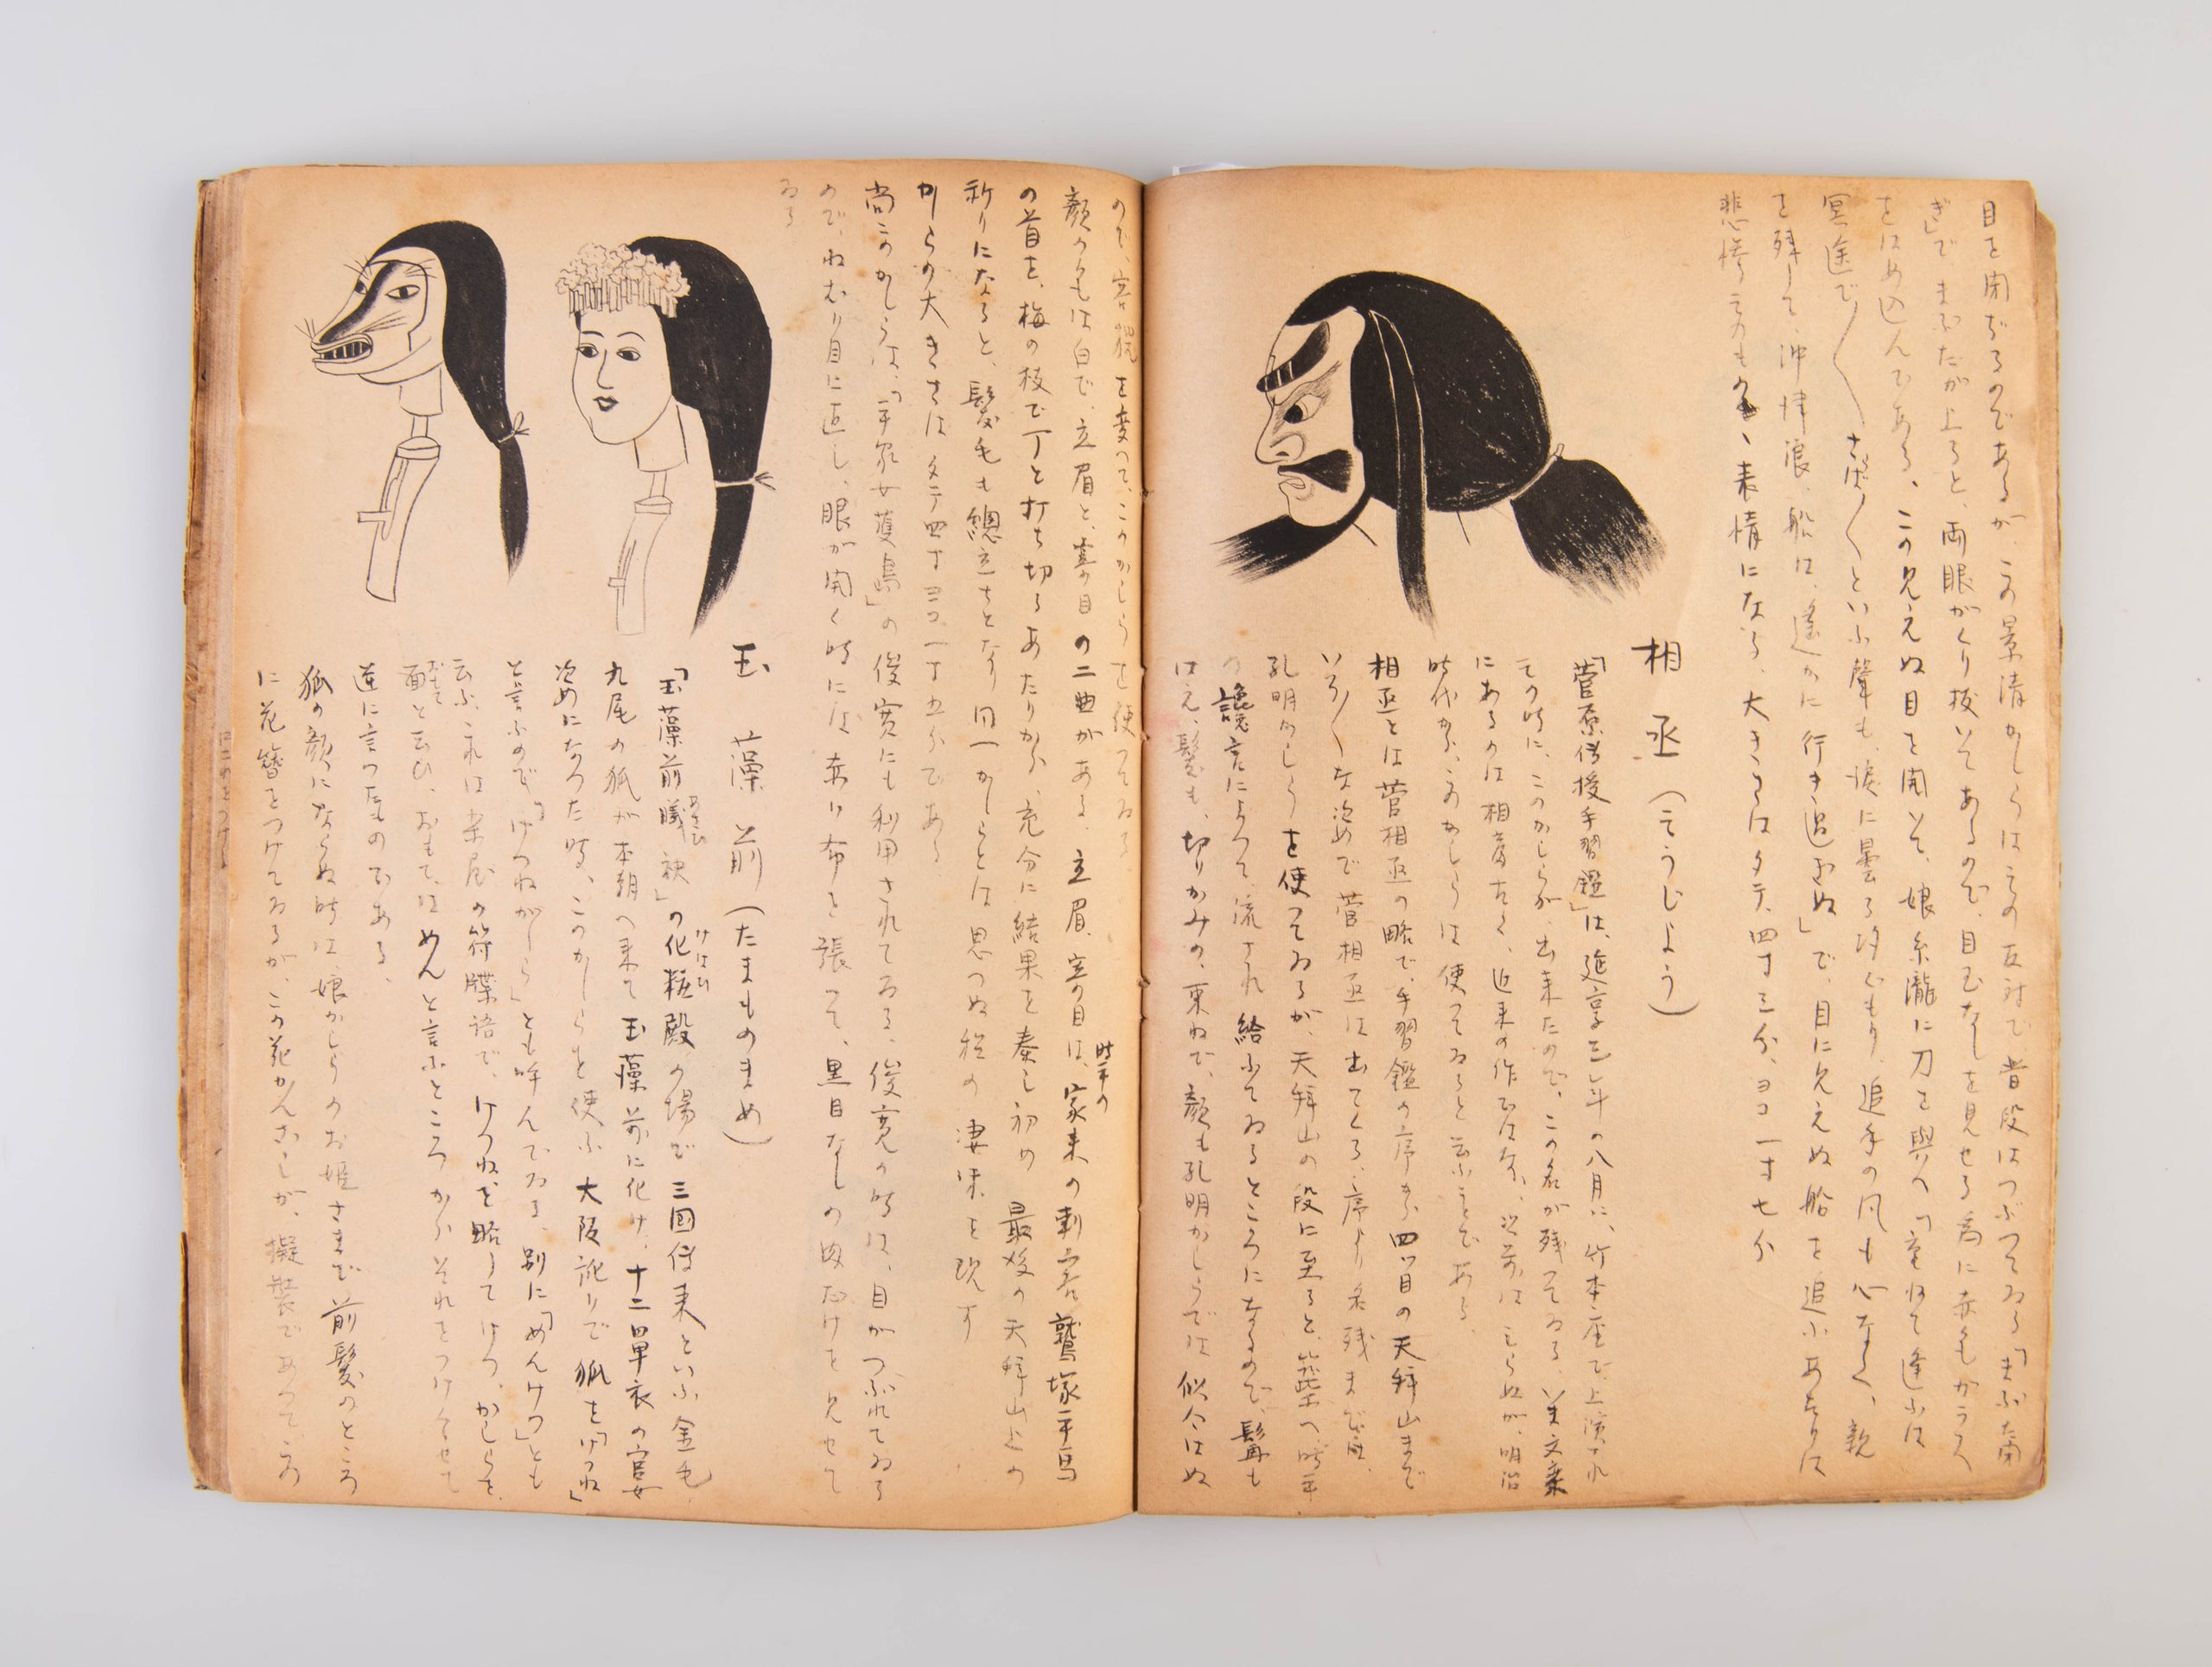 目を閉ぢるのであるが、この景清かしらはその反対で普段はつぶつてゐる「まぶた閉
ぎ」で まぶたが上ると、両眼がくり抜いてあるので、目玉なしを見せる為に赤もガラス
をはめ込んである、この見えぬ目を開いて、娘糸瀧に刀を與へ「重ねて逢ふは
冥途で〳〵さらば〳〵といふ聲も、涙に曇る汐ぐもり、追手の風も心なく、親
を残して、沖津浪、船は、遙かに行き過ぎぬ」で、目に見えぬ船を追ふあたりは
悲惨そのもの、表情になる、大きさはタテ、四寸三分、ヨコ一寸七分
相丞（そうじよう）
「菅原傳授手習鑑」は、延享三年の八月に、竹本座で上演され
その時に、このかしらが、出来たので、この名が残つてゐる、いま文楽
にあるのは相當古く、近来の作ではない、以前は しらぬが、明治
時代から、このかしらは使つてゐると云ふことである、
相丞とは菅相丞の略で、手習鑑の序から、四ツ目の天拜山まで
いろ〳〵な姿めで菅相丞は出てくる、序より名残までは、
孔明かしらを使つてゐるが、天拜山の段に至ると、築紫へ時平
の讒言によつて、流され給ふてゐるところになるので、髯も
はえ、髪も、切りかみの、束ねで、顔も孔明かしらでは似合はぬ
ので、容貌を変へて、このかしらを使つてゐる
顔の色もは白で、立眉と、寄目の二曲がある、立眉、寄り目は、時平の家来の刺客鷲塚平馬
の首を、梅の枝で丁と打ち切るあたりから、充分に結果を奏し初め 最後の天拜山上の
祈りになると、髪毛も總立ちとなり同一かしらとは思つぬ程の 凄味を現す
かしらの大きさはタテ四寸ヨコ一寸五分である
尚このかしらは、「平家女護島」の俊寛にも利用されてゐる、俊寛の時は、目がつぶれてゐる
ので、ねむり目に直し、眼が開く時には 赤い布を張つて、黒目なしの 奴だけを見せて
ゐる
玉藻前（たまものまめ）
「玉藻前曦袂」の化粧殿の場で 三国傳来といふ金毛
九尾の狐が本朝へ来て玉藻前に化け、十二單衣の官女
姿めになつた時、このかしらを使ふ 大阪訛りで狐を「けつね」
と言ふので「けつねがしら」とも呼んでゐる、別に「めんけつ」とも
云ふ、これは楽屋の符牒語で、けつね、を略して けつ、かしらを、
面と云ひ、おもて、は めん と言ふところから それをつけくせて
逆に言つたものである、
狐の顔にならぬ時は、娘かしらのお姫さまで 前髪のところ
に花簪をつけてゐるが、この花かんざしが、擬装であつて、この